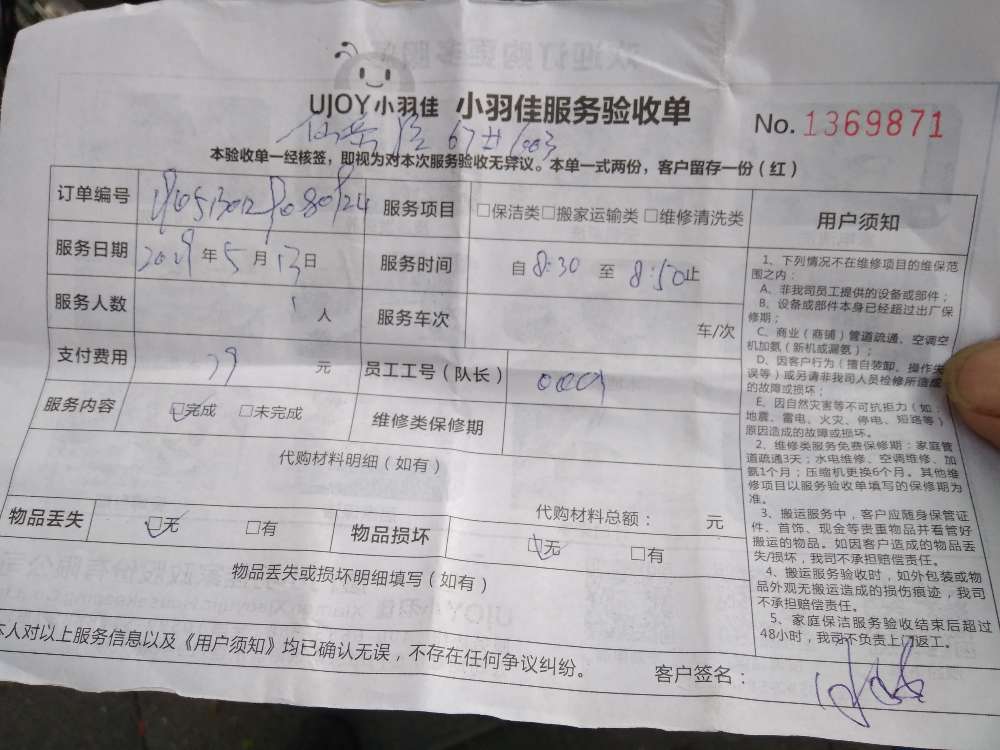 UJOY小羽佳 小羽佳服务验收单
No. 1369871
67 1003
本验收单一经核签，即视为对本次服务验收无异议。本单一式两份，客户留存一份（红）
订单编号
服务项目 □保洁类□搬家运输类□维修清洗类
服务日期 2019年5月13日
服务时间 自8:30至8:50止
服务人数 1人
服务车次 车/次
支付费用 29 元
员工工号（队长）
服务内容 □完成 □未完成
维修类保修期
代购材料明细（如有）
代购材料总额： 元
物品丢失 □无 □有
物品损坏 □无 □有
物品丢失或损坏明细填写（如有）
本人对以上服务信息以及《用户须知》均已确认无误，不存在任何争议纠纷。
客户签名：
用户须知
1、下列情况不在维修项目的维保范
围之内：
A、非我司员工提供的设备或部件；
B、设备或部件本身已经超过出厂保
修期；
C、商业（商铺）管道疏通、空调空
机加氨（新机或漏氨）；
D、因客户行为（擅自装卸、操作失
误等）或另请非我司人员检修所造成
的故障或损坏；
E、因自然灾害等不可抗拒力（如：
地震、雷电、火灾、停电、短路等）
原因造成的故障或损坏。
2、维修类服务免费保修期：家庭管
道疏通3天；水电维修、空调维修、加
氨1个月；压缩机更换6个月。其他维
修项目以服务验收单填写的保修期为
准。
3、搬运服务中，客户应随身保管证
件、首饰、现金等贵重物品并看管好
搬运的物品。如因客户造成的物品丢
失/损坏，我司不承担赔偿责任。
4、搬运服务验收时，如外包装或物
品外观无搬运造成的损伤痕迹，我司
不承担赔偿责任。
5、家庭保洁服务验收结束后超过
48小时，我司不负责上门返工。